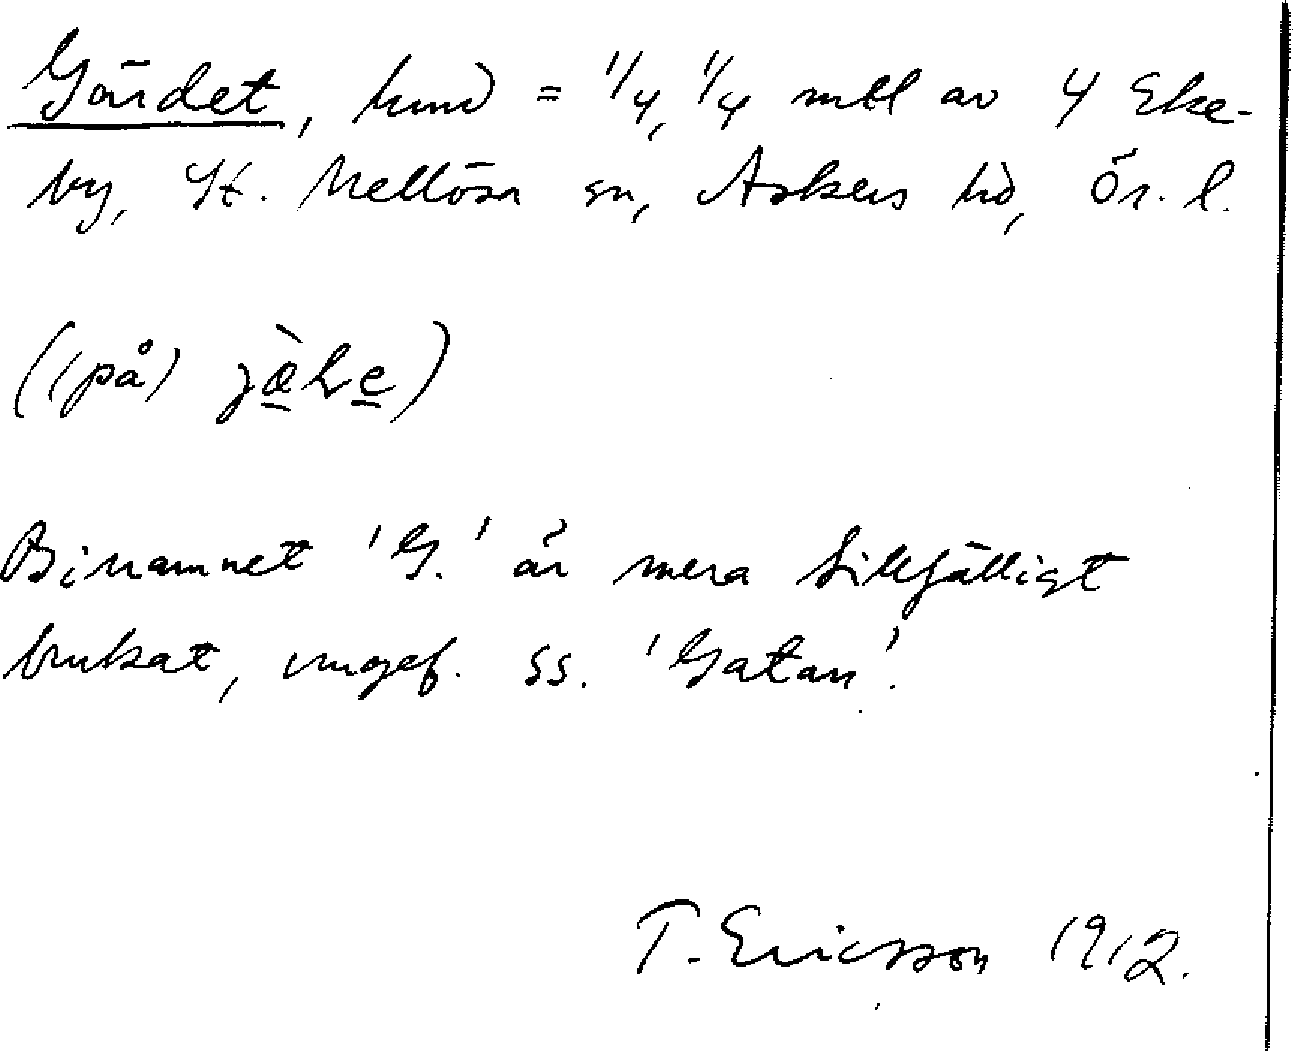 Gärdet, hmd = 1/4, 1/4 mtl av 4 Eke-
by, St. Mellösa sn, Askers hd, Ör. l.
((på)
Binamnet 'G.' är mera tillfälligt
brukat, ungef. ss. 'Gatan'.
T. Ericsson 1912.